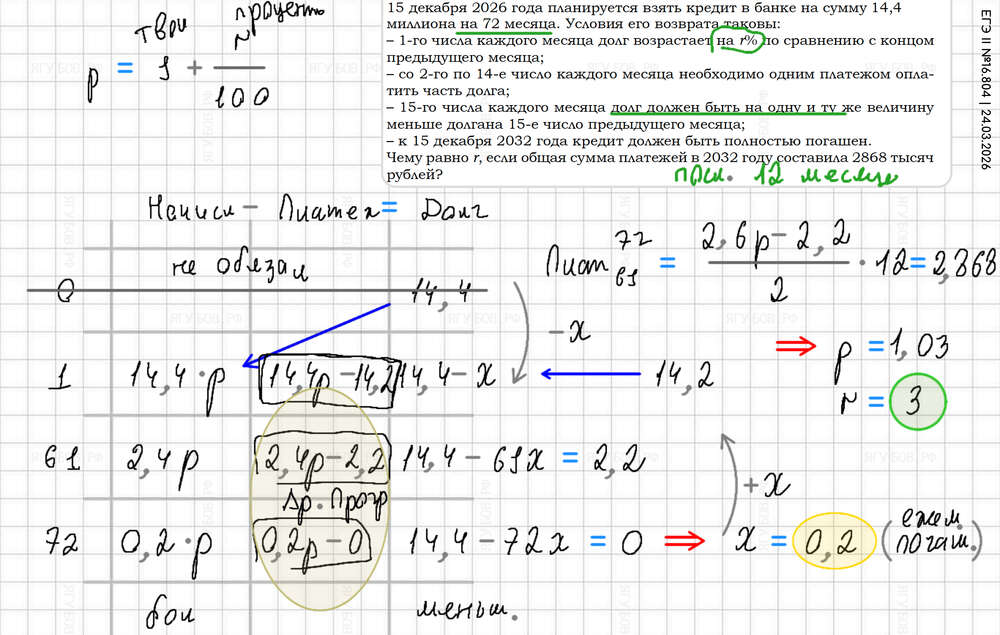 15 декабря 2026 года планируется взять кредит в банке на сумму 14,4
миллиона на 72 месяца. Условия его возврата таковы:
– 1-го числа каждого месяца долг возрастает на r% по сравнению с концом
предыдущего месяца;
– со 2-го по 14-е число каждого месяца необходимо одним платежом опла-
тить часть долга;
– 15-го числа каждого месяца долг должен быть на одну и ту же величину
меньше долгана 15-е число предыдущего месяца;
– к 15 декабря 2032 года кредит должен быть полностью погашен.
Чему равно r, если общая сумма платежей в 2032 году составила 2868 тысяч
рублей?
посл. 12 месяце
ЕГЭ II №16.804 | 24.03.2026
твои проценты
p = 1 + r/100
Начисл – Платеж = Долг
не обязал
0 14,4
– x
1 14,4 · p 14,4p – 14,2 14,4 – x 14,2
61 2,4p 2,4p – 2,2 14,4 – 61x = 2,2
Ар. Прогр
+ x
72 0,2 · p 0,2p – 0 14,4 – 72x = 0 ⇒ x = 0,2 (ежем. погаш.)
бол меньш.
Плат 72 61 = (2,6p – 2,2)/2 · 12 = 2,868
⇒ p = 1,03
r = 3
ЯГУБОВ.РФ